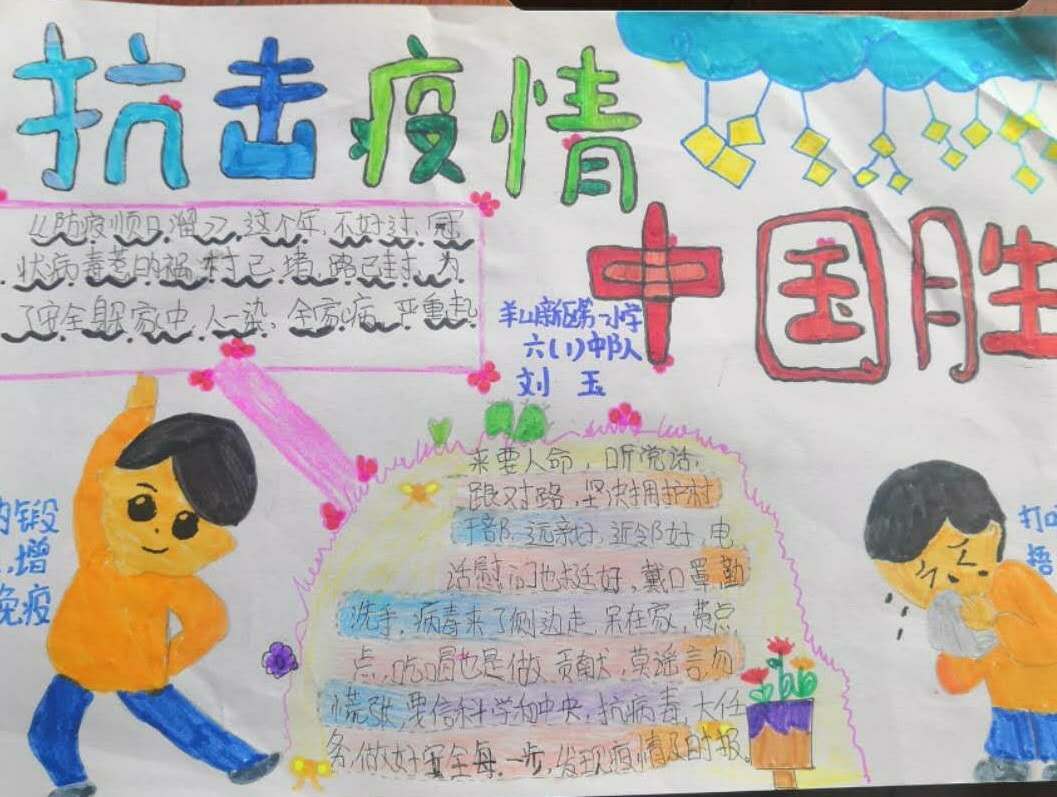 抗击疫情
中国胜
《防疫顺口溜》,这个年,不好过,冠
状病毒惹的祸,村已堵,路已封,为
了安全躲家中,人一染,全家病,严重起
羊山新区第一小学
六(1)中队
刘玉
来要人命,听党话,
跟对路,坚决拥护村
干部,远亲好,近邻好,电
话慰问也挺好,戴口罩勤
洗手,病毒来了侧边走,呆在家,费点
点,吃喝也是做贡献,莫谣言,勿
慌张,要信科学和中央,抗病毒,大任
务,做好安全每一步,发现疫情及时报。
锻
,增
免疫
打
捂